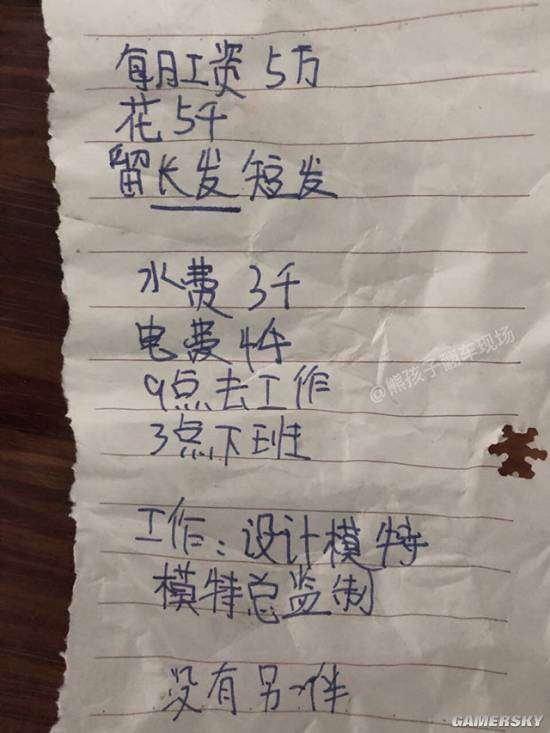 每月工资 5万
花 5千
留长发 短发
水费 3千
电费 4千
9点去工作
3点下班
工作：设计模特
模特总监制
没有另一伴
@熊孩子翻车现场
GAMERSKY